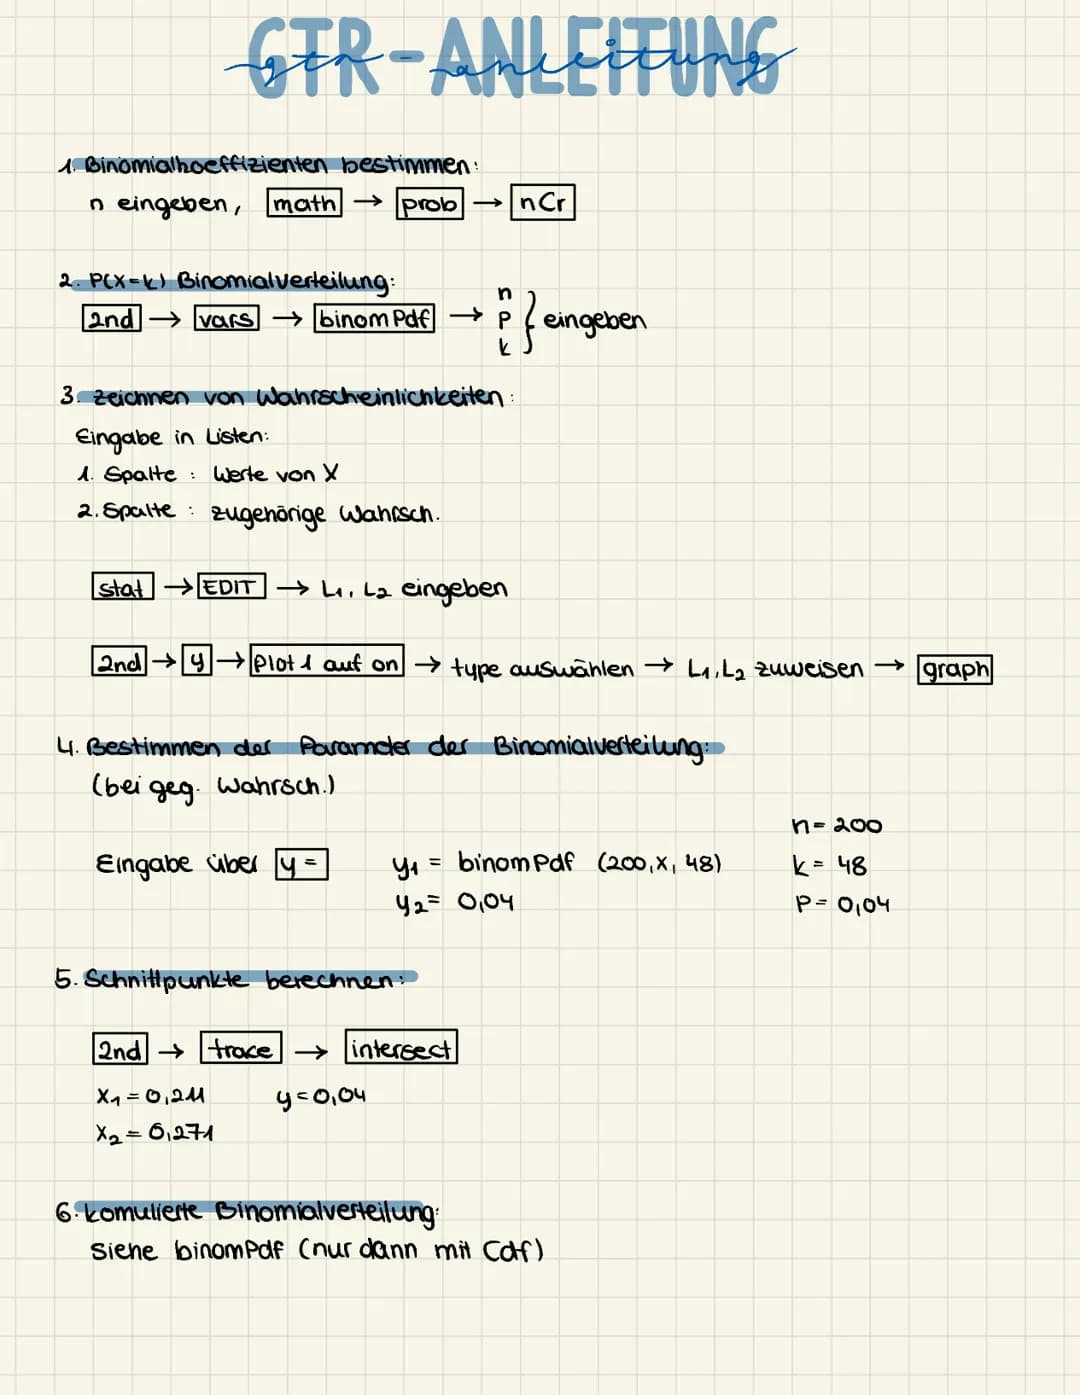 GTR-ANLEITUNG
gtr-anleitung
1. Binomialkoeffizienten bestimmen:
n eingeben, math → prob → nCr
2. P(X=k) Binomialverteilung:
2nd → vars → binomPdf → n p k } eingeben
3. Zeichnen von Wahrscheinlichkeiten:
Eingabe in Listen:
1. Spalte : Werte von X
2. Spalte : zugehörige Wahrsch.
stat → EDIT → L1, L2 eingeben
2nd → y → Plot 1 auf on → type auswählen → L1, L2 zuweisen → graph
4. Bestimmen der Parameter der Binomialverteilung:
(bei geg. Wahrsch.)
n = 200
Eingabe über y = y1 = binomPdf (200, X, 48) k = 48
y2 = 0,04 P = 0,04
5. Schnittpunkte berechnen:
2nd → trace → intersect
X1 = 0,211 y = 0,04
X2 = 0,271
6. komulierte Binomialverteilung:
siehe binomPdf (nur dann mit Cdf)